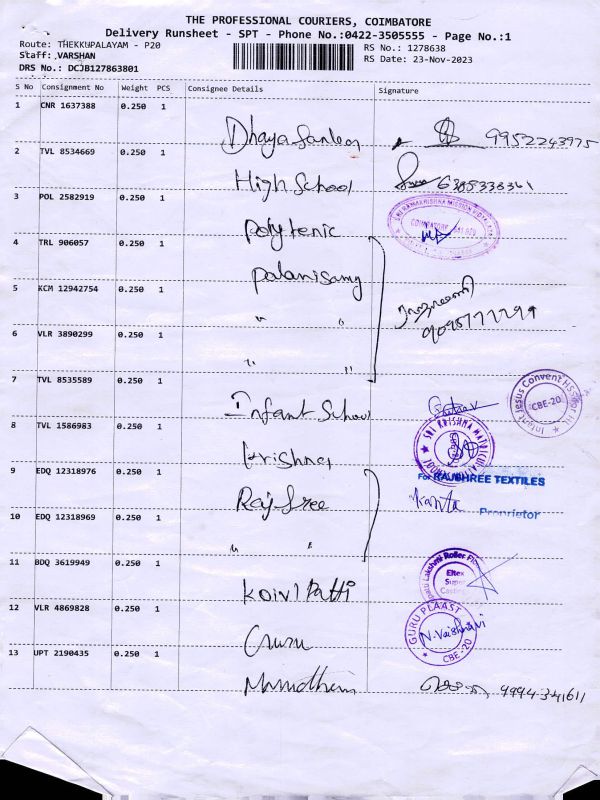 THE PROFESSIONAL COURIERS, COIMBATORE
Delivery Runsheet - SPT - Phone No.:0422-3505555 - Page No.:1
Route: THEKKUPALAYAM - P20
RS No.: 1278638
Staff: VARSHAN
RS Date: 23-Nov-2023
DRS No.: DCJB127863801
S No Consignment No Weight PCS Consignee Details Signature
1 CNR 1637388 0.250 1
9952243975
2 TVL 8534669 0.250 1
High School 6385338361
3 POL 2582919 0.250 1
Polytenic
4 TRL 906057 0.250 1
Palanisamy
5 KCM 12942754 0.250 1
" "
6 VLR 3890299 0.250 1
" "
7 TVL 8535589 0.250 1
Infant School
Infant Jesus Convent
CBE-20
8 TVL 1586983 0.250 1
Krishna
SRI KRISHNA
For RAJSHREE TEXTILES
9 EDQ 12318976 0.250 1
Raj Sree
Kanta
Proprietor
10 EDQ 12318969 0.250 1
" "
11 BDQ 3619949 0.250 1
Koivl Patti
Lakshmi Roller
Eltex
Super
Casting
12 VLR 4869828 0.250 1
Guru
GURU PLAAST
N. Vaishnavi
CBE-20
13 UPT 2190435 0.250 1
9994341611